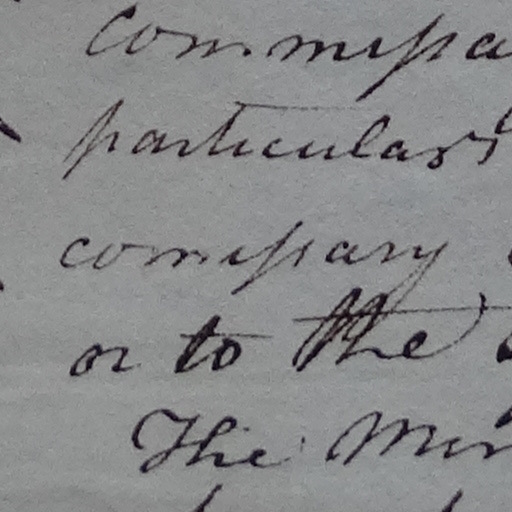 Commissa
particulars
commissary
or to the
The Min